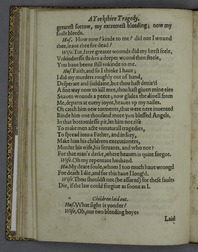 A Yorkshire Tragedy.
greatest sorrow, my extremest bleeding; now my
soule bleeds.
Hus. How now? kinde to me? did not I wound
thee, leaue thee for dead?
Wife. Tut, farre greater wounds did my brest feele,
Vnkindnesse strikes a deeper wound then steele,
You haue beene still vnkinde to me.
Hus. Faith, and so I thinke I haue;
I did my murders roughly out of hand,
Desperate and sodaine, but thou hast deuis'd
A fine way now to kill mee, thou hast giuen mine eies
Seauen wounds a peece; now glides the diuell from
Me, departs at euery ioynt, heaues vp my nailes.
Oh catch him new torments, that were nere inuented
Binde him one thousand more you blessed Angels,
In that bottomlesse pit, let him not rise
To make men acte vnnaturall tragedies,
To spread into a Father, and in fury,
Make him his childrens executioners,
Murder his wife, his seruants, and who not?
For that man's darke, where heauen is quite forgot.
Wife. Oh my repentant husband.
Hus. My deere soule, whom I too much haue wrongd
For death I die, and for this haue I long'd.
Wife. Thou shouldst not (be assured) for these faults
Die, if the law could forgiue as soone as I.
Children laid out.
Hus. What sight is yonder?
Wife. Oh, our two bleeding boyes
Laid